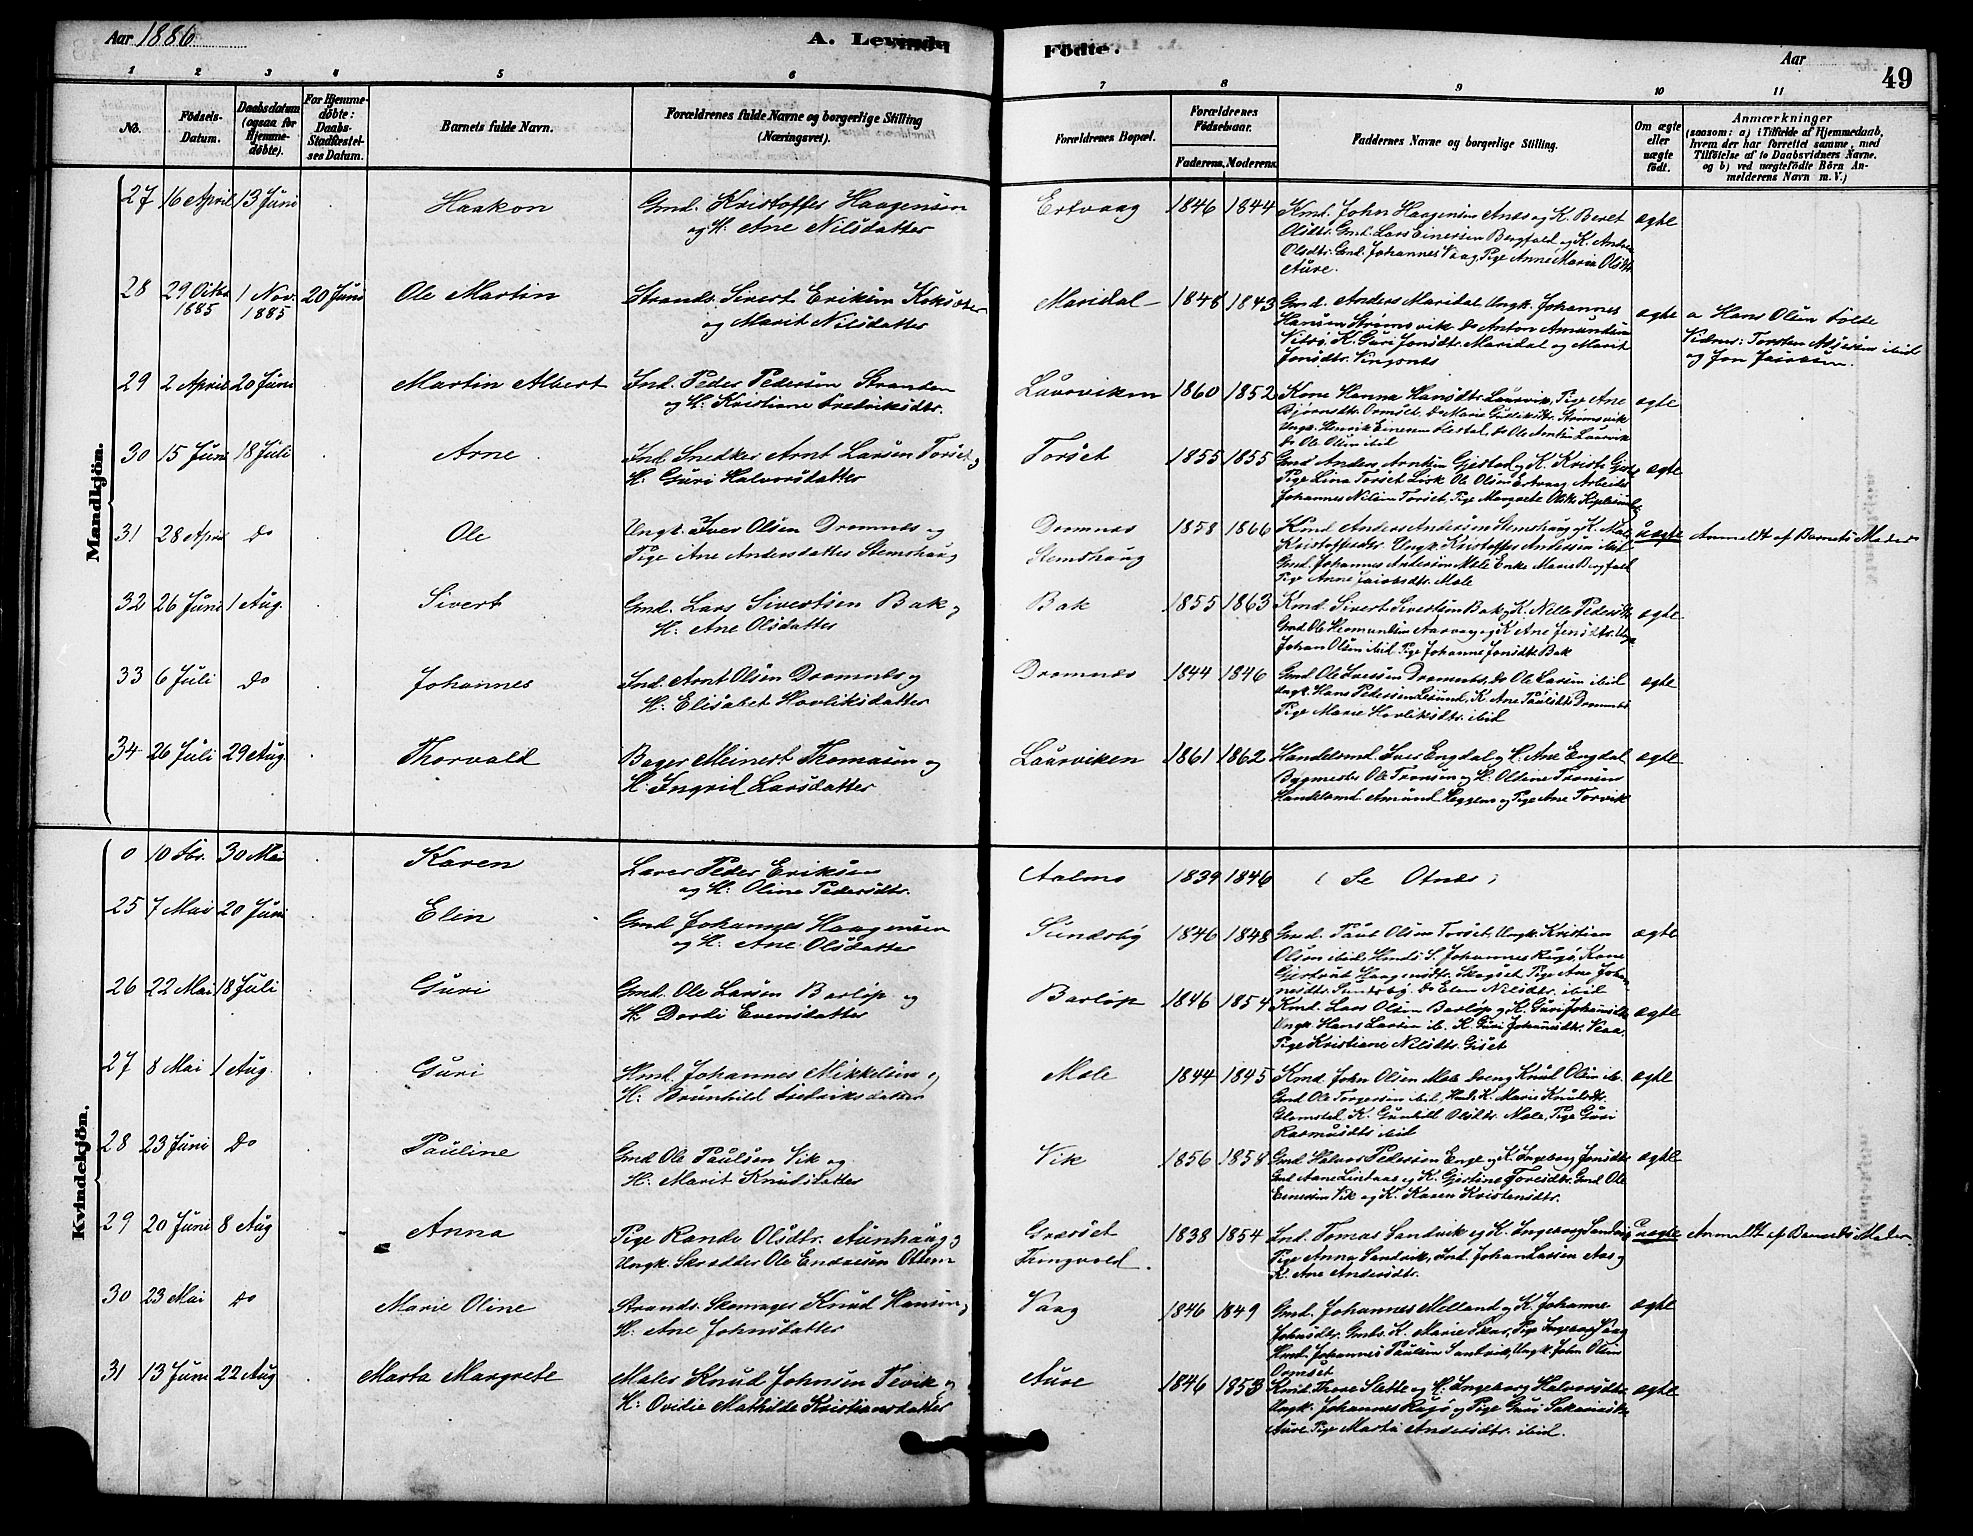 Aar 1886
A. Levende
Födte.
Aar
49
1 2 3 4 5 6 7 8 9 10 11
No.
Födsels-
Datum.
Daabsdatum
(ogsaa for
Hjemme-
døbte).
For Hjemme-
døbte:
Daabs-
Stadfæstel-
ses Datum.
Barnets fulde Navn.
Forældrenes fulde Navne og borgerlige Stilling
(Næringsvei).
Forældrenes Bopæl.
Forældrenes
Födselsaar.
Faderens. Moderens.
Faddernes Navne og borgerlige Stilling.
Om ægte
eller
uægte
födt.
Anmærkninger
(saasom: a) i Tilfælde af Hjemmedaab,
hvem der har forrettet samme, med
Tilføielse af to Daabsvidners Navne.
og b) ved uægtefödte Börn An-
melderens Navn m. V.)
Mandkjön.
27 16 April 13 Juni Haakon
Gmd. Kristoffer Haagensen
og H. Ane Nilsdatter
Ertvaag 1846 1844
Kmd. John Haagensen Anes og K. Beret
Olsdtr. Gmd. Lars Einersen Bergfald og K. Andrea
Olsdtr. Gmd. Johannes Vaag, Pige Anne Maria Olsdtr
Aure.
ægte
28 29 Oktbr 1885 1 Nov. 1885 20 Juni Ole Martin
Strands. Sivert Eriksen
og Marit Nilsdatter
Maridal 1848 1843
Gmd. Anders Maridal, Ungk. Johannes
Hansen Strømsvik, Do Anton Amundsen
K. Guri Jonsdtr. Maridal og Marit
Jonsdtr. Vingsnes
ægte
a Hans Olsen Tolte
Vidner: Torsten ibid
og Jon
29 2 April 20 Juni Martin Albert
Ind. Peder Pedersen Stranden
og H. Kristiane Fredriksdtr.
Laurviken 1860 1852
Kone Hanna Hansdtr. Laurvik, Pige Ane
Bjørnsdtr. Ormset, Do Marie Strømsvik
Ungk. Henrik Einersen Do Ole Laurvik
Do Ole Olsen ibid
ægte
30 15 Juni 18 Juli Arne
Ind. Snedker Arnt Larsen Torset og
H. Guri Halvorsdatter
Torset 1855 1855
Gmd Anders Arntsen Gjestad og K. Kristi
Pige Lina Torset Ole Olsen Ertvaag Arbeider
Johannes Nilsen Torset, Pige Margrete
ægte
31 28 April Do Ole
Ungk. Iver Olsen Dromnes og
Pige Ane Andersdatter Stemshaug
Dromnes
Stemshaug
1858 1866
Kmd Anders Andersen Stemshaug og K. Male
Kristoffersdtr. Ungk. Kristoffer Andersen ibid
Gmd. Johannes Andersen Mole Enke Marie Bergfald
Pige Anne Jacobsdtr. Mole
uægte
Anmeldt af Barnets Moder
32 26 Juni 1 Aug. Sivert
Gmd. Lars Sivertsen Bak og
H. Ane Olsdatter
Bak 1855 1863
Kmd. Sivert Sivertsen Bak og K. Nelle Pedersdtr
Gmd Ole Hermundsen Aarvaag og K Ane Jensdtr. Ungk
Johan Olsen ibid Pige Johanne Jonsdtr Bak
ægte
33 6 Juli Do Johannes
Ind. Arnt Olsen Dromnes og
H. Elisabet Hovliksdatter
Dromnes 1844 1846
Gmd Ole Iversen Dromnes, Do Ole Larsen ibid
Ungk. Hans Pedersen Lesund, K. Ane Paulsdtr Dromnes
Pige Marie Hovliksdtr. ibid
ægte
34 26 Juli 29 Aug. Thorvald
Bager Meinert Thomasen og
H. Ingrid Larsdatter
Laurviken 1861 1862
Handelsmd. Iver Engdal og H. Ane Engdal
Bygmester Ole Tronsen og H. Oldine Tronsen
Handelsmd. Amund Heggem og Pige Ane Torvik
ægte
Kvindekjön.
0 10 Fbr. 30 Mai Karen
Peder Eriksen
og H. Oline Pedersdtr.
Aalmo 1839 1846
( Se Otnes )
25 7 Mai 20 Juni Elin
Gmd Johannes Haagensen
og H. Ane Olsdatter
Sundsby 1846 1848
Gmd. Paul Olsen Torset, Ungk. Kristian
Olsen ibid Johannes Rugø, Kone
Gjertrud Haagensdtr. Skogset Pige Ane Johan-
nesdtr. Sundsby, Do Elen Nilsdtr. ibid
ægte
26 22 Mai 18 Juli Guri
Gmd. Ole Larsen Barløp og
H. Dordi Evensdatter
Barløp 1846 1854
Kmd. Lars Olsen Barløp og K. Guri Johansdtr
Ungk. Hans Larsen ib. K. Guri Johansdtr.
Pige Kristiane Nilsdtr. Giset
ægte
27 8 Mai 1 Aug. Guri
Hmd. Johannes Mikkelsen og
H. Brunhild Fredriksdatter
Mole 1844 1845
Kmd. John Olsen Mole Dreng Knud Olsen ib.
Gmd Ole Torgersen ibid, K. Marie Knudsdtr.
Glomstad K. Gunhild Olsdtr. Mole, Pige Guri
Rasmusdtr ibid
ægte
28 23 Juni Do Pauline
Gmd Ole Paulsen Vik og
H. Marit Knudsdatter
Vik 1856 1858
Gmd Halvor Pedersen Enge og K. Ingeborg Jonsdtr
Gmd Arne Lintaas og K. Gjertine Toresdtr. Gmd Ole
Einersen Vik og K. Karen Kristensdtr.
ægte
29 20 Juni 8 Aug Anna
Pige Rande Olsdtr. Aunhaug og
Ungk. Skrædder Ole Endresen Ottem
Grasset
Tingvold.
1838 1854
Ind. Tomas Sandvik og K. Ingeborg Sandvik
Pige Anna Sandvik, Ind. Johan Larsen Aas og
K. Ane Andersdtr.
uægte
Anmeldt af Barnets Moder.
30 23 Mai Do Marie Oline
Strands. Skomager Knud Hansen og
H. Ane Johnsdatter
Vaag 1846 1849
Gmd. Johannes Melland og K. Johanne
Johnsdtr. Gmbr. K. Marie Skar, Pige Ingeborg Vaag
Hmd. Johannes Paulsen Sandvik, Ungk. John Olsen
Ormset
ægte
31 13 Juni 22 Aug Marta Margrete
Maler Knud Johnsen Tevik og
H. Ovidie Mathilde Kristiansdatter
Aure 1846 1853
Kmd. Thore Slette og H. Ingeborg Halvorsdtr
Ungk. Johannes Rugø og Pige Guri Sakariasdtr
Aure, Pige Marta Andersdtr. ibid.
ægte